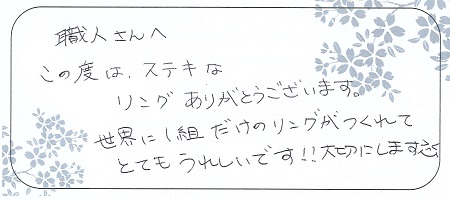 職人さんへ
この度は、ステキな
リング ありがとうございます。
世界に1組だけのリングがつくれて
とてもうれしいです!!大切にします